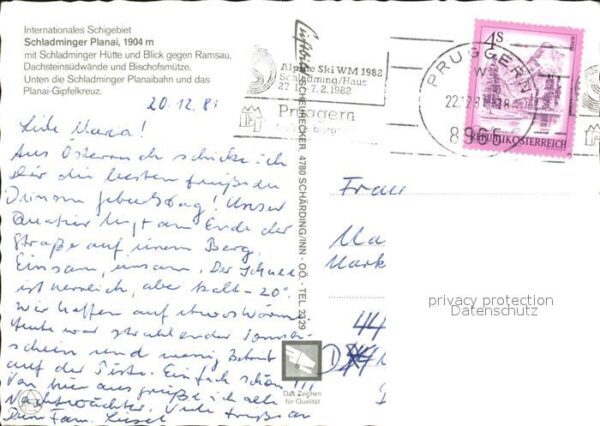 Internationales Schigebiet
Schladminger Planai, 1904 m
mit Schladminger Hütte und Blick gegen Ramsau,
Dachsteinsüdwände und Bischofsmütze.
Unten die Schladminger Planaibahn und das
Planai-Gipfelkreuz.
20.12.81
Aus Österreich schicke ich
Dir die besten Grüße zu
Deinem Geburtstag! Unser
Quartier liegt am Ende der
Straße auf einem Berg.
Einsam, einsam. Der Schnee
ist herrlich, aber kalt -20°.
Wir hoffen auf etwas Wärme
Heute war strahlender Sonnen-
schein und wenig Betrieb
auf der Piste. Einfach schön!!!
Von hier aus grüße ich alle
Nachtwächter. Viele Grüße an
Fam. Liesel
SCHEURECKER 4780 SCHÄRDING/INN - OÖ. - TEL. 2329
Das Zeichen
für Qualität
Alpine Ski WM 1982
Schladming/Haus
7.2.1982
Pruggern
PRUGGERN
8965
4S
REPUBLIK ÖSTERREICH
Frau
Ma
Mark
44
privacy protection
Datenschutz